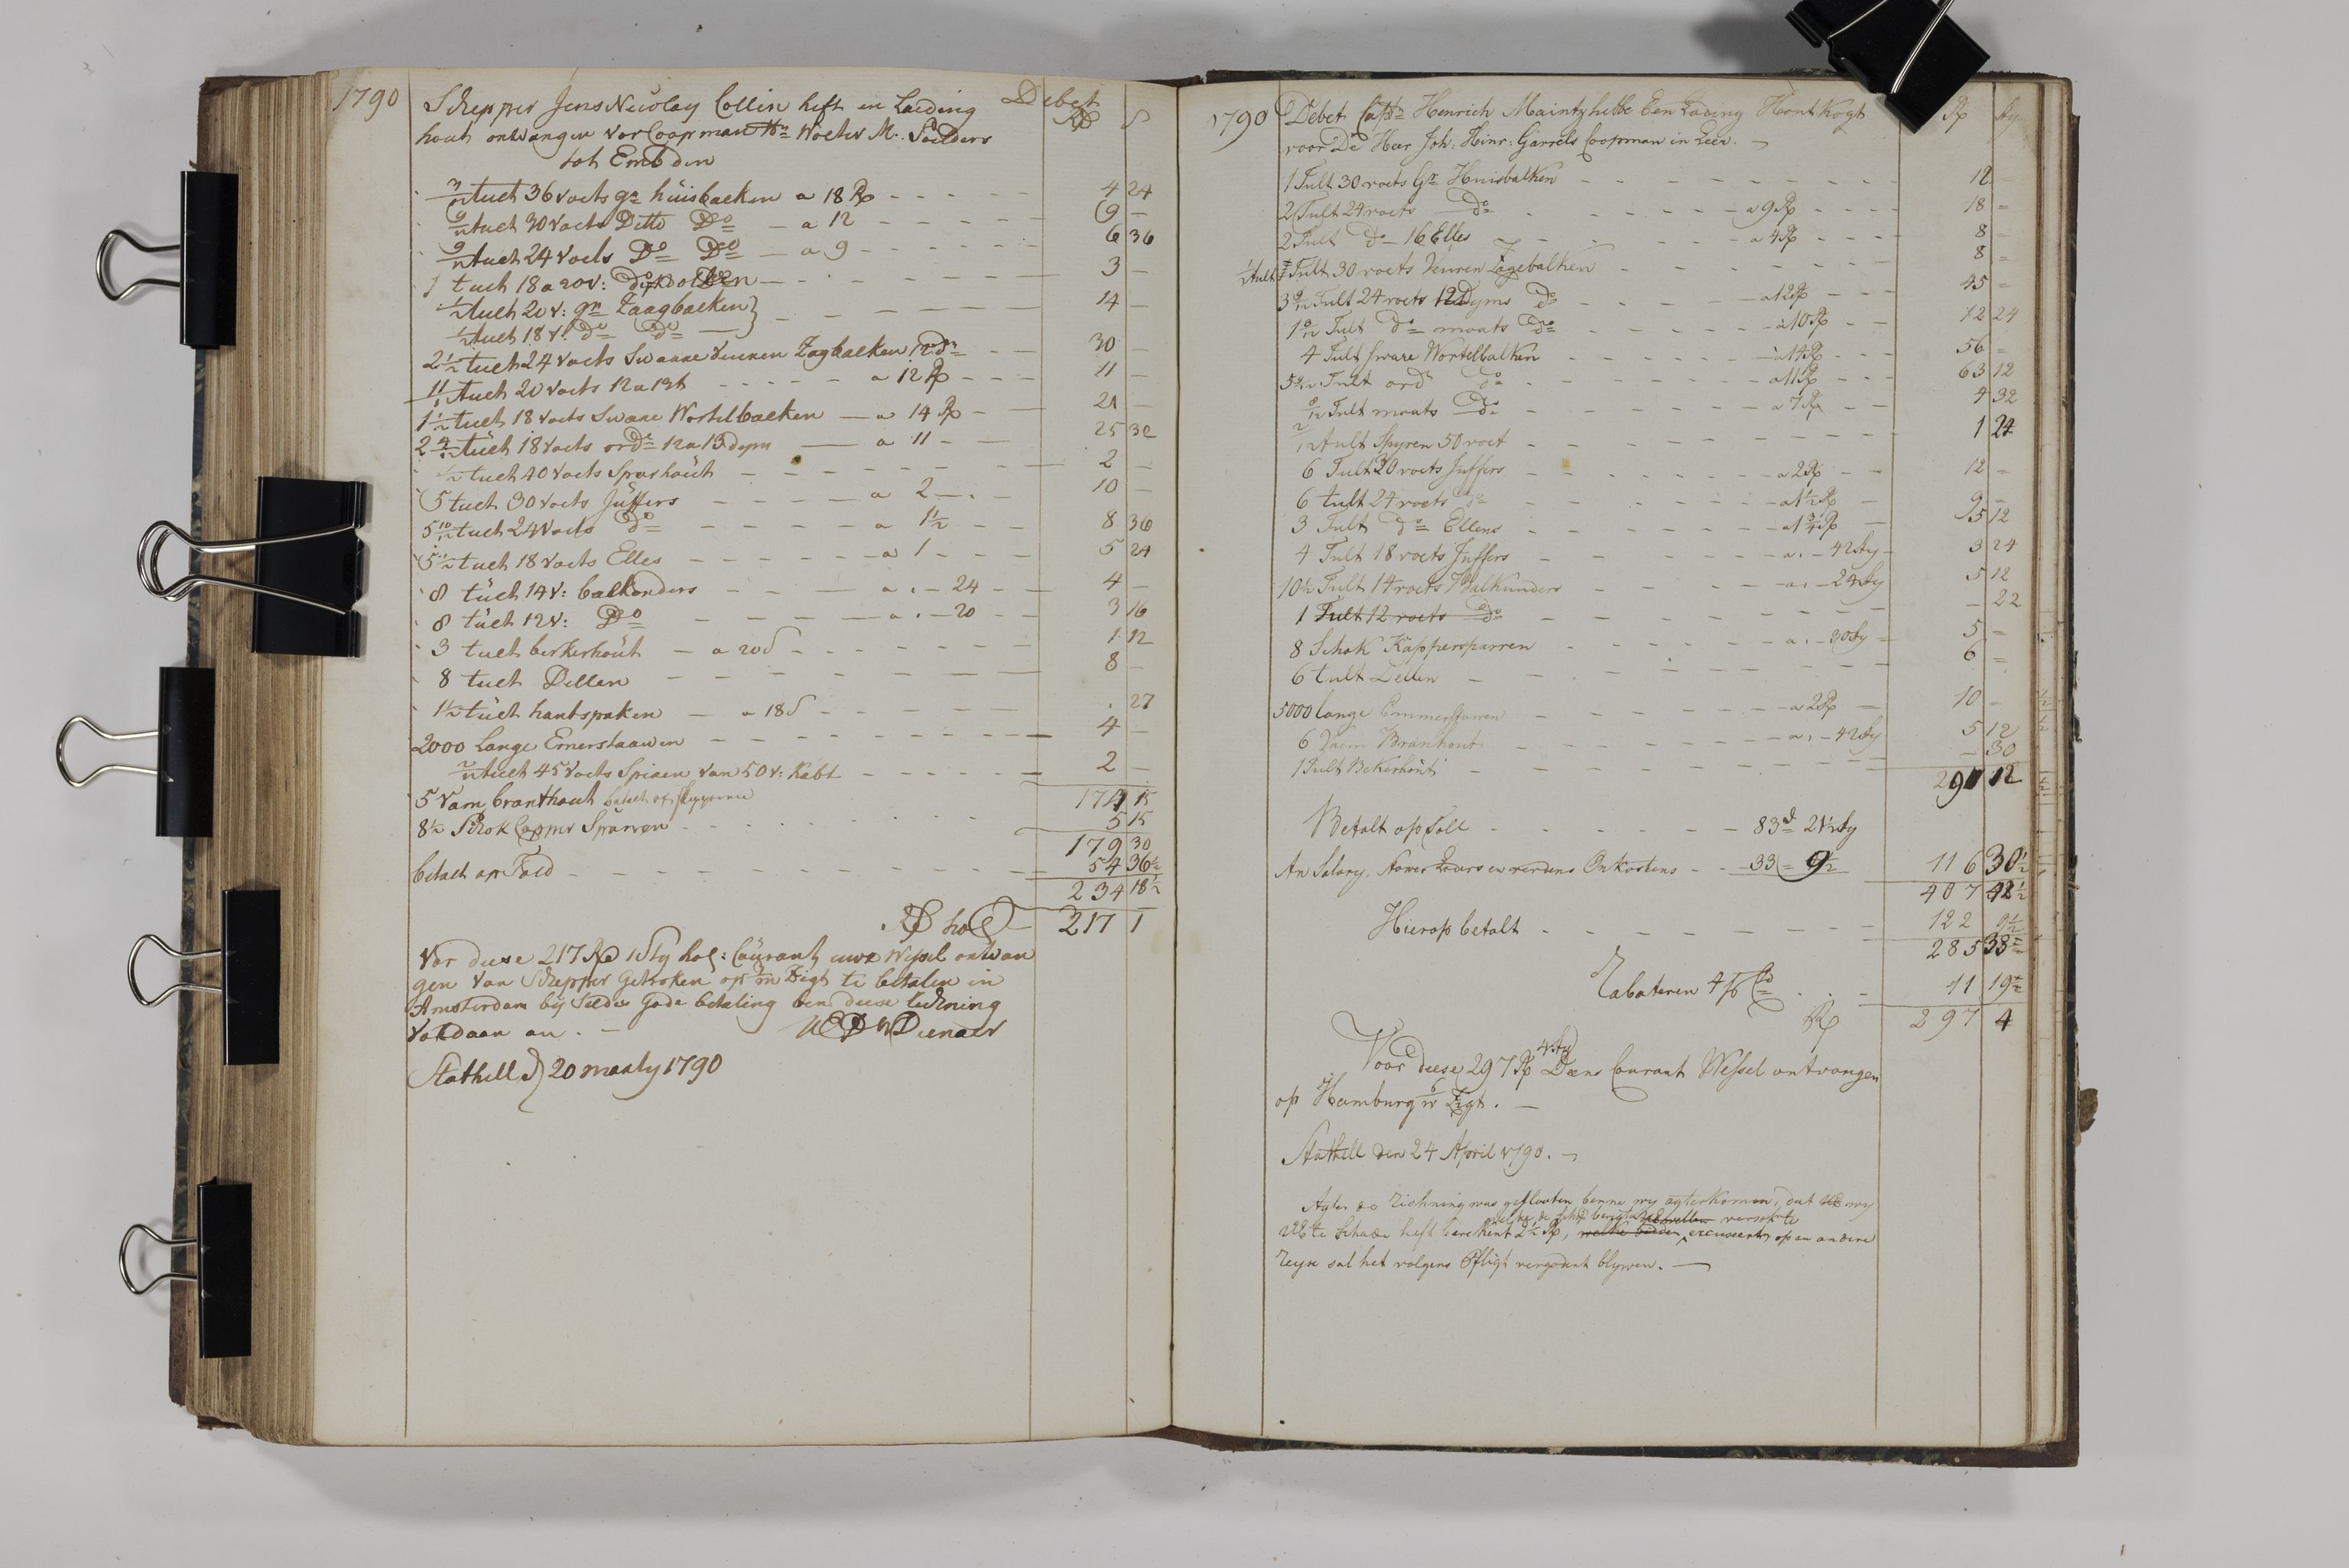 1790 Schepper Jens Nicolay Collin heft en Laeding Debet
hout ontvangen vor Coopman Wolter M. Sielders Rp S
tot Embden
3/12 tuelt 36 voets gr: huisbaeken a 18 Rp - - - 4 24
9/12 tuelt 30 voets Ditto Do - a 12 - - - 9 -
9/12 tuelt 24 voets Do Do - a 9 - - - 6 36
1 tuelt 18 a 20 v: - - - 3 -
1/2 tuelt 20 v: gn Zaagbaeken } - - - 14 -
1/2 tuelt 18 v: do do }
2 1/2 tuelt 24 voets Swaare Zagbaeken - - 30 -
11/12 tuelt 20 voets 12 a 13 - - - a 12 Rp - - - 11 -
1 1/2 tuelt 18 voets Swaare Wortelbaeken - a 14 Rp - 21 -
2 4/12 tüelt 18 voets ord: 12 a 13 dym - a 11 - 25 32
1/2 tuelt 40 voets Sparhoüt - - - 2 -
5 tuelt 30 voets Jüffers - - - a 2 - . - 10 -
5 10/12 tuelt 24 voets Do - - - a 1 1/2 - - 8 36
5 1/2 tuelt 18 voets Elles - - - a 1 - - - 5 24
8 tüelt 14 v: balkonders - - - a . - 24 - - 4 -
8 tüelt 12 v: Do - - - a . - 20 - - 3 16
3 tuelt berkerhoüt - a 20 S - - - 1 12
8 tuelt Dellen - - - 8 -
1 1/2 tüelt hantspaken - a 18 S - - - . 27
2000 Lange Emerstaawen - - - 4 -
2/12 tuelt 45 voets Spieren van 50 v: Kabt - - - 2 -
5 Vam branthout betaelt of schippers 174 15
8 1/2 Schok Capper Sparren - - - 5 15
179 30
betaelt op Told - - - 54 36 1/2
234 18 1/2
Rp hol 217 1
Vor diese 217 Rp 1 Sty hol: Courant uwe Wessel ontvan
gen van Schepper Getroken op Zigt te betalen in
Amsterdam by Gode betaling ben diese Reckning
voldaan an. - Dienaer
Stathell d 20 maaty 1790
1790 Debet Capt: Henrich Maintz hebbe Een Lading Hout Kogt Rp Sty
voor De Heer Joh: Hinr: Garrels Coopman in Leer. -
1 Tult 30 voets Gr: Huisbalken - - - 12 -
2 Tult 24 voets do - - - a 9 Rp - - - 18 =
2 Tult do 16 Elles - - - a 4 Rp - - - 8 =
Tult 30 voets Vuren Zagebalken - - - 8 =
3 9/12 Tult 24 voets 12 Dyms do - - - a 12 Rp - - - 45 =
Tult do moats do - - - a 10 Rp - - 12 24
4 Tult sware Wortelbalken - - - a 14 Rp - - - 56 =
Tult ord do - - - a 11 Rp - - - 63 12
8/12 Tult moats do - - - a 7 Rp - - 4 32
2/12 tult Spyren 50 voet - - - 1 24
6 Tult 30 voets Juffers - - - a 2 Rp - - 12 =
6 tult 24 voets do - - - a 1 1/2 Rp - 9 -
3 Tult do Ellens - - - a 1 3/4 Rp - 5 12
4 Tult 18 voets Juffers - - - a . - 42 Sty - 3 24
10 1/2 Tult 14 voets Balkunders - - - a . - 24 Sty 5 12
1 Tult 12 voets do - - - - 22
8 Schok Kappersparren - - - a . - 30 Sty - 5 -
6 tult Dellen - - - 6 =
5000 lange Emmerstaven - - - a 2 Rp - 10 -
6 Vaem Branhout - - - a . - 42 Sty 5 12
1 Tult Bekerhout - - - - 30
291 12
Betalt op Toll - - - 83 = 21 1/2 Sty
An Salary, Armer Lours en verdens Onkostens - - 33 = 9 1/2 116 30 1/2
407 42 1/2
Hierop betalt - - - 122 9 1/2
285 33 =
Rabateren 4 p Co - - - 11 19 =
Rp 297 4
Voor diese 297 Rp 4 Sty Daens Courant Wessel ontvangen
op Hamburg Zigt. -
Stathell den 24 April 1790. -
Agter de Richning was geslooten benne wy agterkomen, dat wy
te Schade heft berekent 2 1/2 Rp, excuseert, op en andere
reyse sal het volgens Pfligt vergodent blywen. -